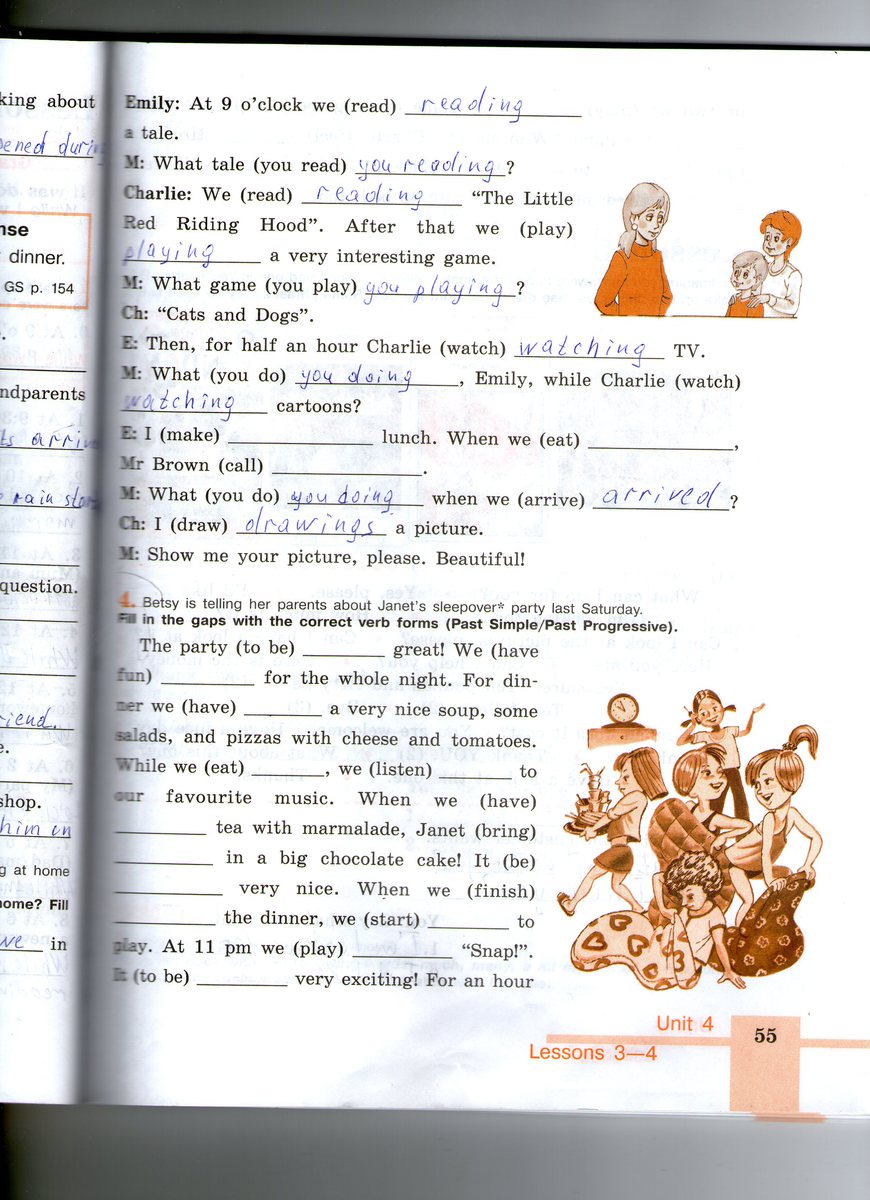 king about
Emily: At 9 o'clock we (read) reading
a tale.
M: What tale (you read) you reading?
Charlie: We (read) reading "The Little
Red Riding Hood". After that we (play)
playing a very interesting game.
M: What game (you play) you playing?
Ch: "Cats and Dogs".
E: Then, for half an hour Charlie (watch) watching TV.
M: What (you do) you doing, Emily, while Charlie (watch)
watching cartoons?
E: I (make) ____ lunch. When we (eat) ____,
Mr Brown (call) ____.
M: What (you do) you doing when we (arrive) arrived?
Ch: I (draw) drawings a picture.
M: Show me your picture, please. Beautiful!
4. Betsy is telling her parents about Janet's sleepover* party last Saturday.
Fill in the gaps with the correct verb forms (Past Simple/Past Progressive).
The party (to be) ____ great! We (have
fun) ____ for the whole night. For din-
ner we (have) ____ a very nice soup, some
salads, and pizzas with cheese and tomatoes.
While we (eat) ____, we (listen) ____ to
our favourite music. When we (have)
____ tea with marmalade, Janet (bring)
____ in a big chocolate cake! It (be)
____ very nice. When we (finish)
____ the dinner, we (start) ____ to
play. At 11 pm we (play) ____ "Snap!".
It (to be) ____ very exciting! For an hour
Unit 4
Lessons 3—4
55
pened durin
nse
dinner.
GS p. 154
ndparents
ts arriv
rain star
question.
riend.
shop.
him on
g at home
home? Fill
we in